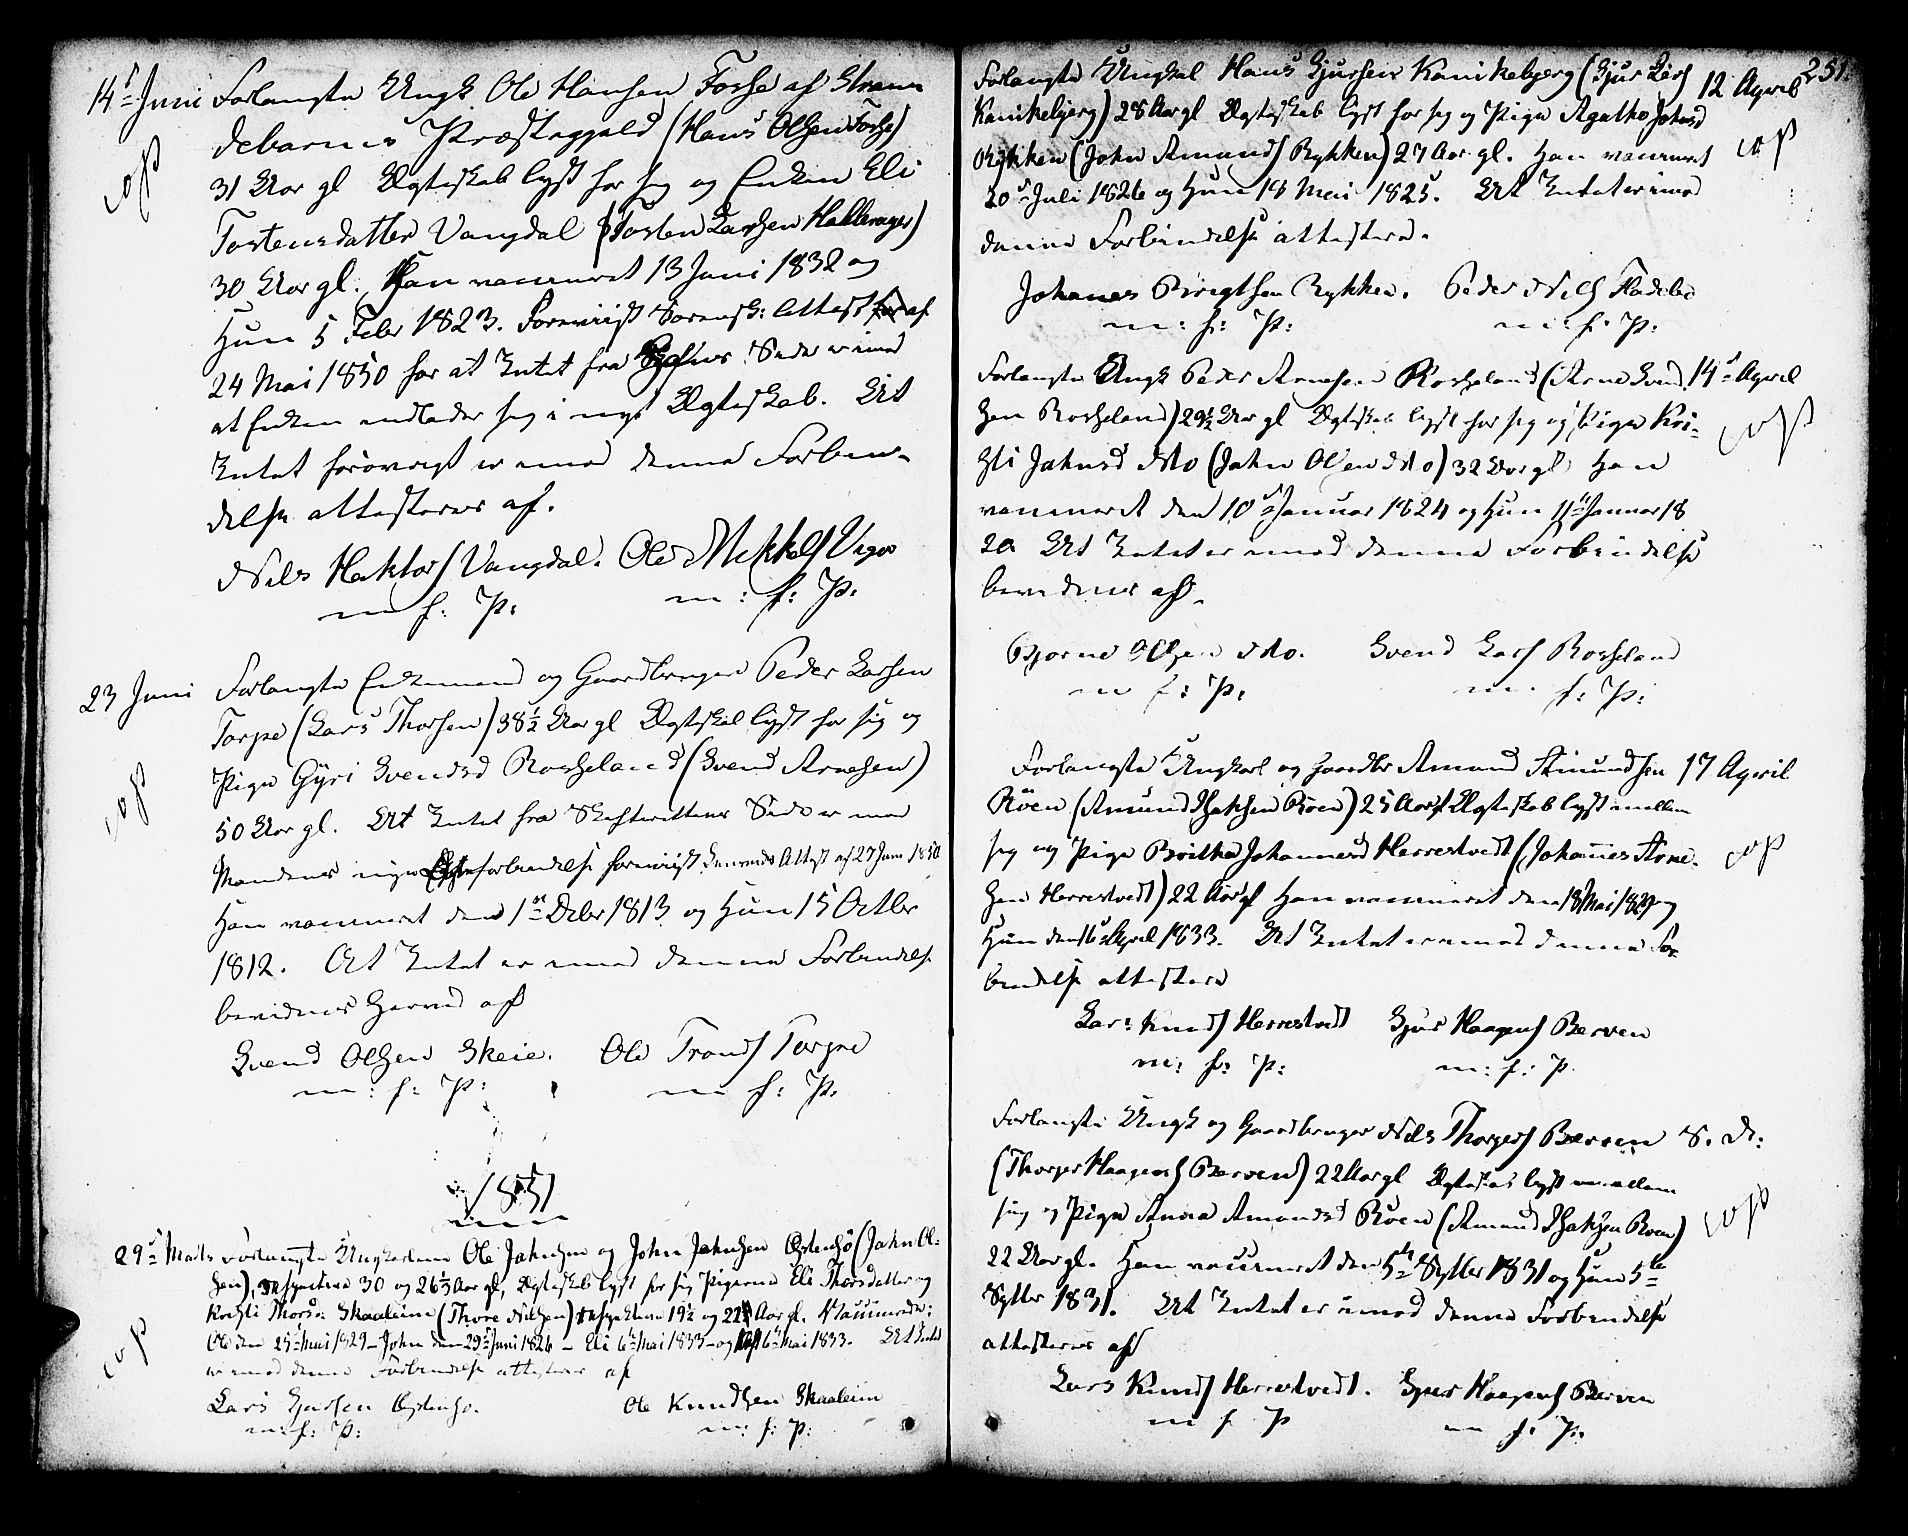 14de Juni Forlangte Ungk Ole Hansen Fosse af Stran
debarms Præstegjeld (Hans Olsen Fosse)
cop
31 Aar gl Ægteskab lyst for sig og Enken Eli
Torstensdatter Vangdal (Torsten Larssen Hallerager)
30 Aar gl. Han vaccineret 13 Juni 1832 og
Hun 5 Febr 1823. Foreviist Sorensk: Attest af
24 Mai 1850 for at Intet fra Side er imod
at Enken indlader sig i nyt Ægteskab. At
Intet forøvrigt er imod denne Forbin-
delse attesteres af.
Nils Haktors Vangdal. Ole Mikkels
m f: P: m: f: P:
23 Juni Forlangte Enkemand og Gaardbruger Peder Larsen
Torpe (Lars Thorsen) 38½ Aar gl Ægteskab lyst for sig og
Pige Gyri Svendsd Rosseland (Svend Arnesen)
cop
50 Aar gl. At Intet fra Skifterettens Side er imod
Mandens nye forbindelse foreviist Attest af 27 Juni 1850
Han vaccineret den 1ste Debr 1813 og Hun 15 Octbr
1812. At Intet er imod denne Forbindelse
bevidnes herved af
Svend Olsen Skeie. Ole Tronds Torpe
m: f: P: m f: P.
1851
29de Marts Forlangte Ungkarlene Ole Jahnsen og John Jahnsen Østensø (Jahn Ol-
sen), respective 30 og 26½ Aar gl, Ægteskab lyst for sig Pigerne Eli Thorsdatter og
Kristi Thorsd: Skaaleim (Thore Nilsen) respective 19½ og Aar gl. Vaccinerede:
cop
Ole den 25de Mai 1829 - John den 29de Juni 1826 - Eli 6te Mai 1833 - og 6te Mai 1833. At Intet
er imod denne Forbindelse attesteres af
Lars Sjursen Østensø. Ole Knudsen Skaaleim
m: f: P: m: f: P:
251.
Forlangte Ungkal Hans Sjursen Kanikebjerg (Sjur Lars 12 April
Kanikebjerg) 28 Aar gl Ægteskab lyst for sig og Pige Agatha Johnsd
Rykken (John Amunds Rykken) 27 Aar gl. Han vaccineret cop
20de Juli 1826 og Hun 18 Mai 1825. At Intet er imod
denne Forbindelse attestere.
Johanes Brigtsen Rykken. Peder Nils Fladebø
m: f: P: m: f: P:
Forlangte Ungk Peder Arnesen Rosseland (Arne Svend 14de April
sen Rosseland) 29½ Aar gl Ægteskab lyst for sig og Pige Kri-
cop
sti Jahnsd Mo (Jahn Olsen Mo) 32 Aar gl Han
vaccineret den 10de Januar 1824 og Hun 11te Januar 18
20 At Intet er imod denne Forbindelse
bevidnes af.
Bjorne Olsen Mo. Svend Lars Rosseland
m f: P: m. f: P:
Forlangte Ungkarl og Gaardbr Amund Amundsen 17 April
Röen (Amund Isaksen Röen) 25 Aar gl Ægteskab lyst imellem
sig og Pige Britha Johannesd Herrestvedt (Johannes Arne- cop
sen Herrestvedt) 22 Aar gl Han vaccineret den 18 Mai 1829 og
Hun den 16de April 1833. At Intet er imod denne For
bindelse attestere
Lars Knuds Herrestvedt Sjur Haagens Berven
m: f: P: m: f: P.
Forlangte Ungk og Gaardbruger Nils Thorgers Berven S. D:
(Thorger Haagens Berven) 22 Aar gl Ægteskab lyst imellem
sig og Pige Anna Amundsd Röen (Amund Isaksen Roen) cop
22 Aar gl. Han vaccineret den 5te Septbr 1831 og Hun 5te
Septbr 1831. At Intet er imod denne Forbindelse
attesteres af
Lars Knuds Herrestvedt. Sjur Haagens Berven
m f P m f: P: